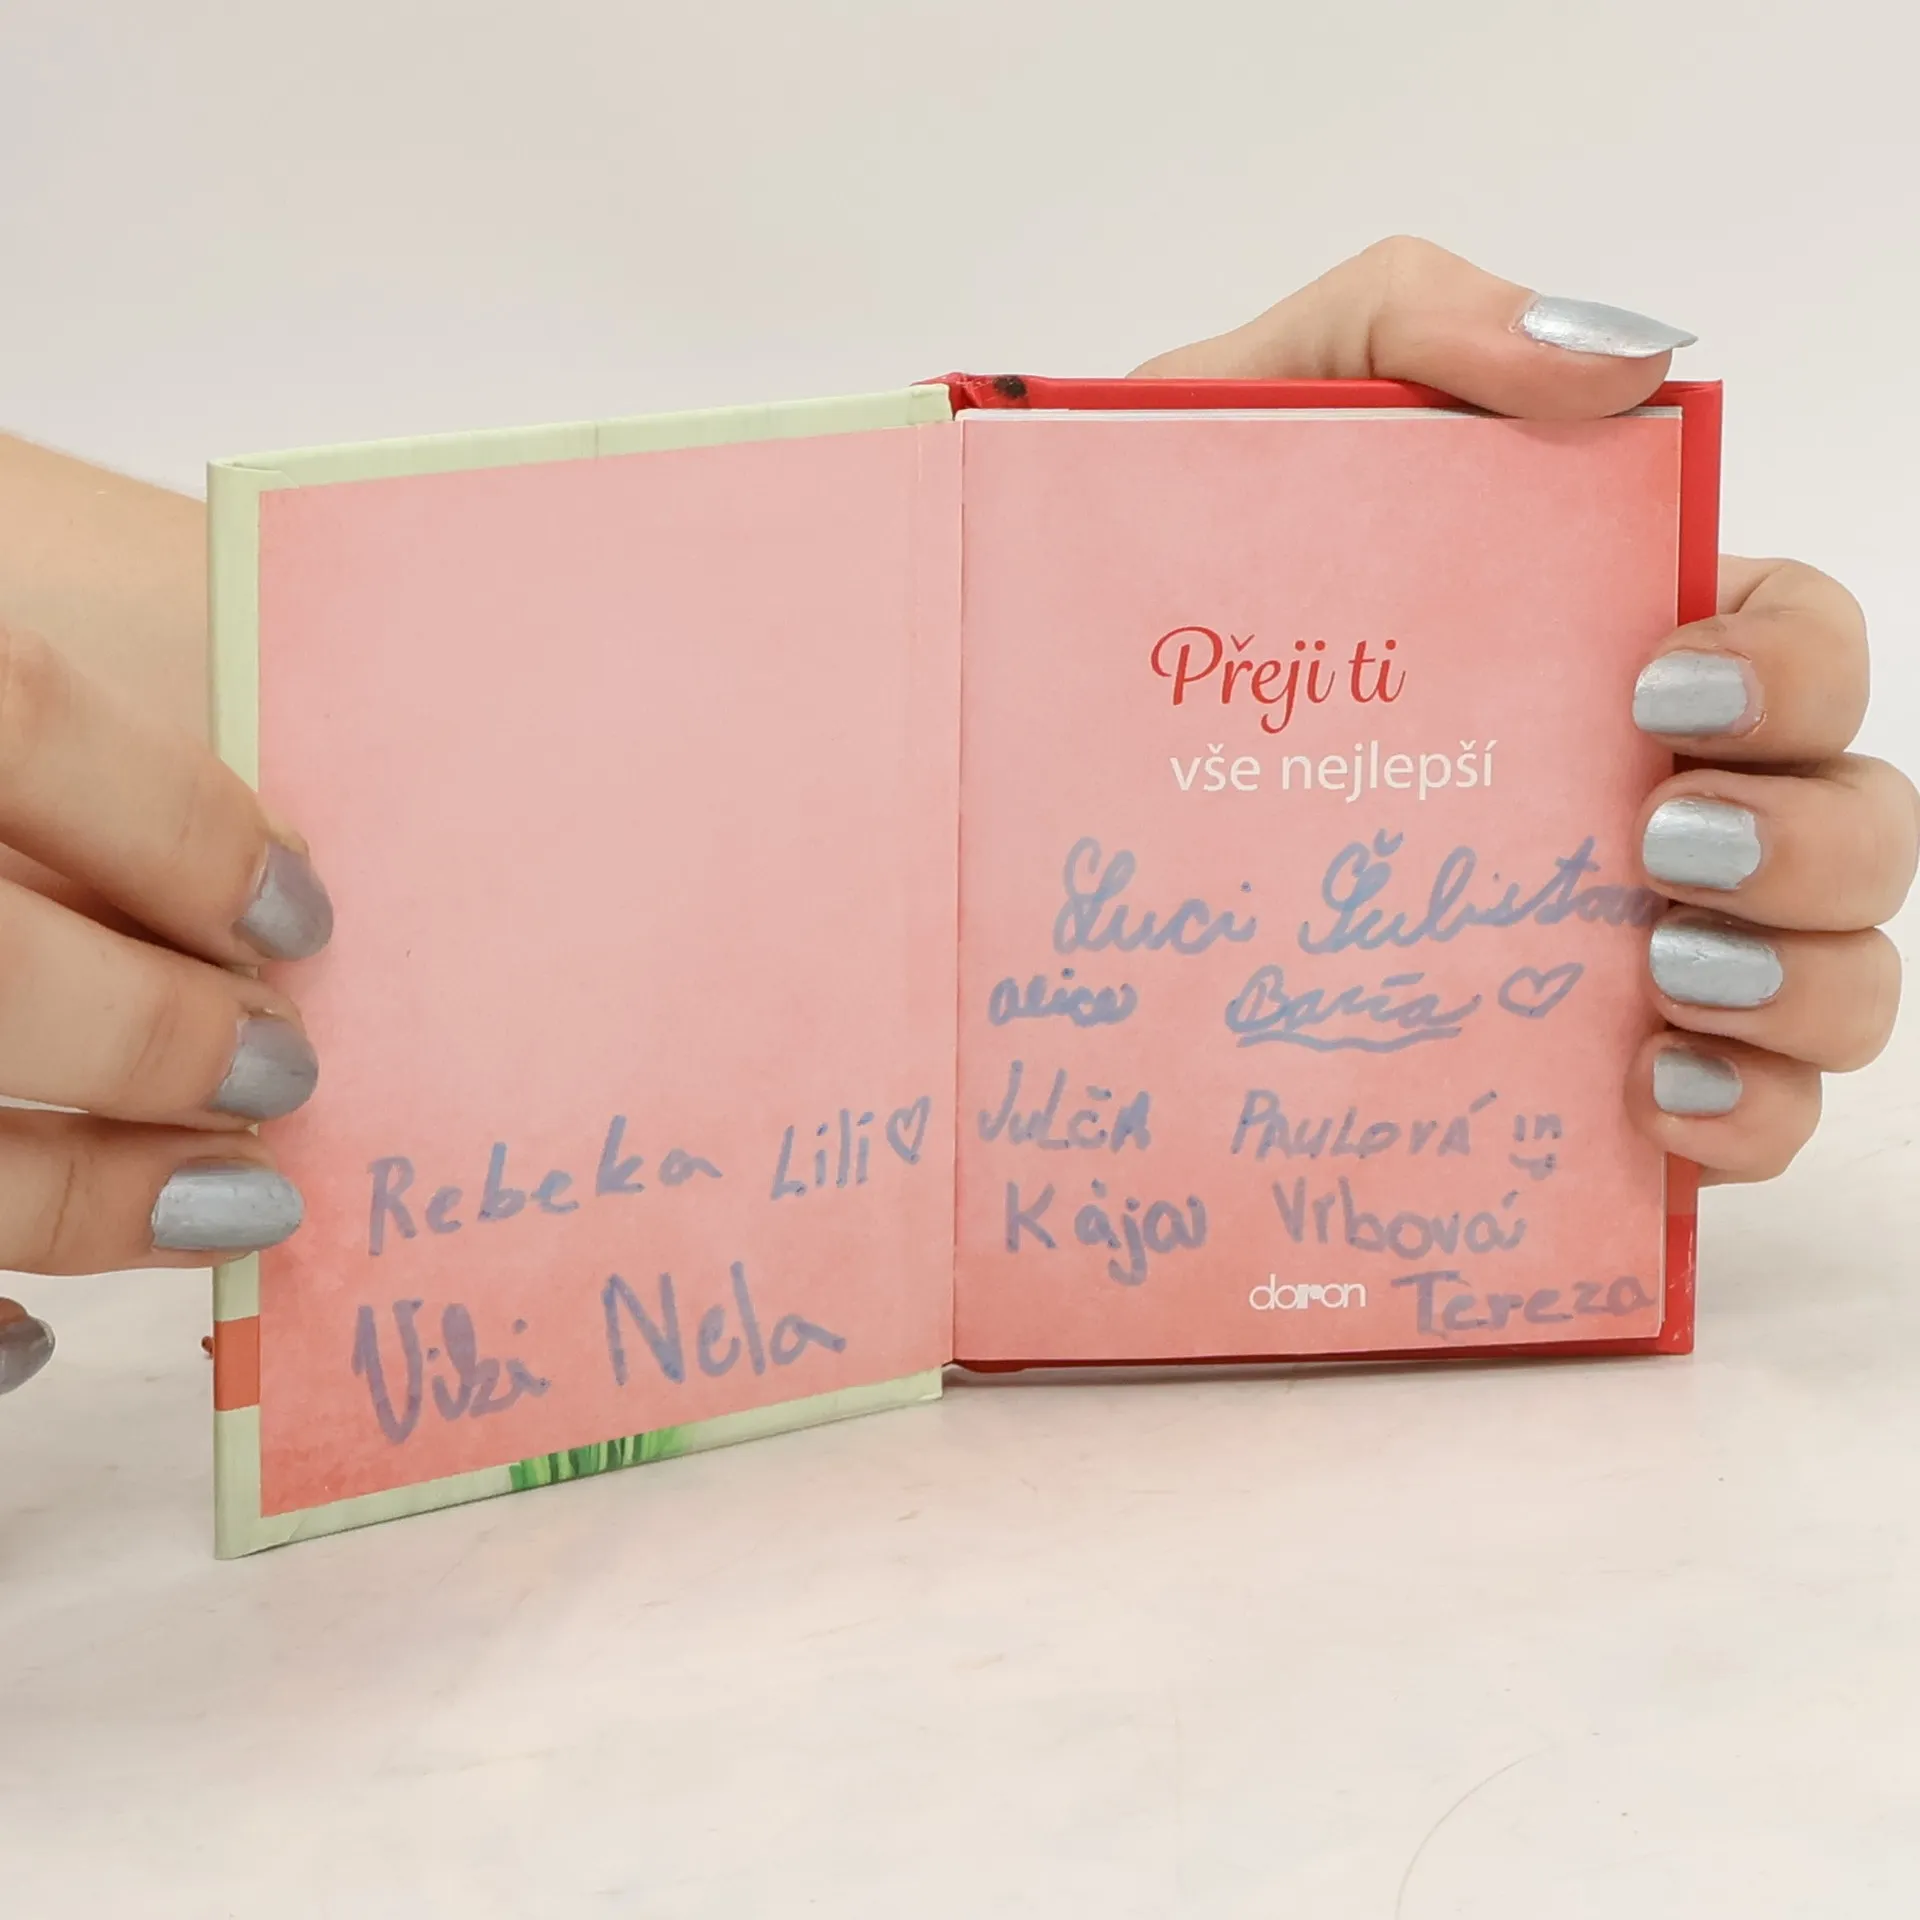 Rebeka Lilí
Viki Nela
Přeji ti
vše nejlepší
Luci
alice Barča
JULČA PAULOVÁ
Kája Vrbová
doron Tereza